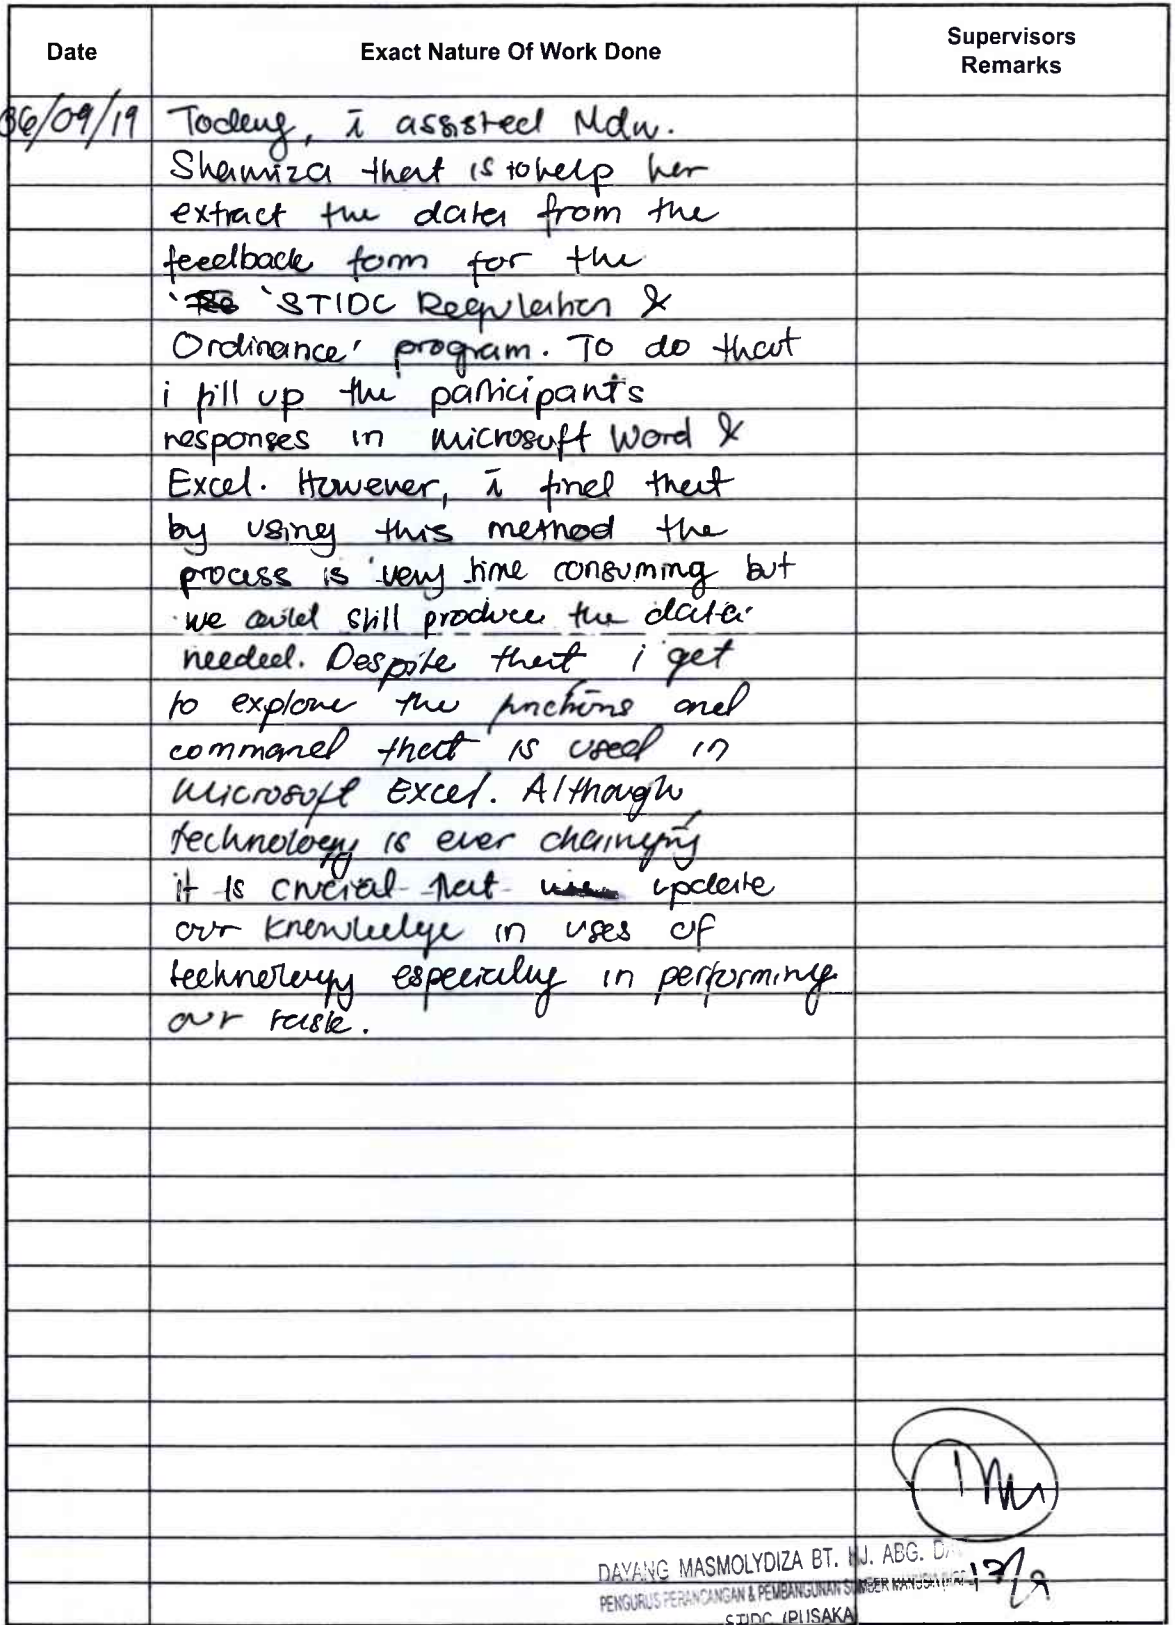 Date Exact Nature Of Work Done Supervisors Remarks
06/09/19 Today, i assisted Mdm.
Shamiza that is to help her
extract the data from the
feedback form for the
'STIDC Regulation &
Ordinance' program. To do that
i fill up the participants
responses in Microsoft Word &
Excel. However, i find that
by using this method the
process is very time consuming but
we could still produce the data
needed. Despite that i get
to explore the functions and
command that is used in
Microsoft Excel. Although
technology is ever changing
it is crucial that update
our knowledge in uses of
technology especially in performing
our task.
DAYANG MASMOLYDIZA BT. HJ. ABG.
PENGURUS PERANCANGAN & PEMBANGUNAN SUMBER MANUSIA
STIDC (PUSAKA)